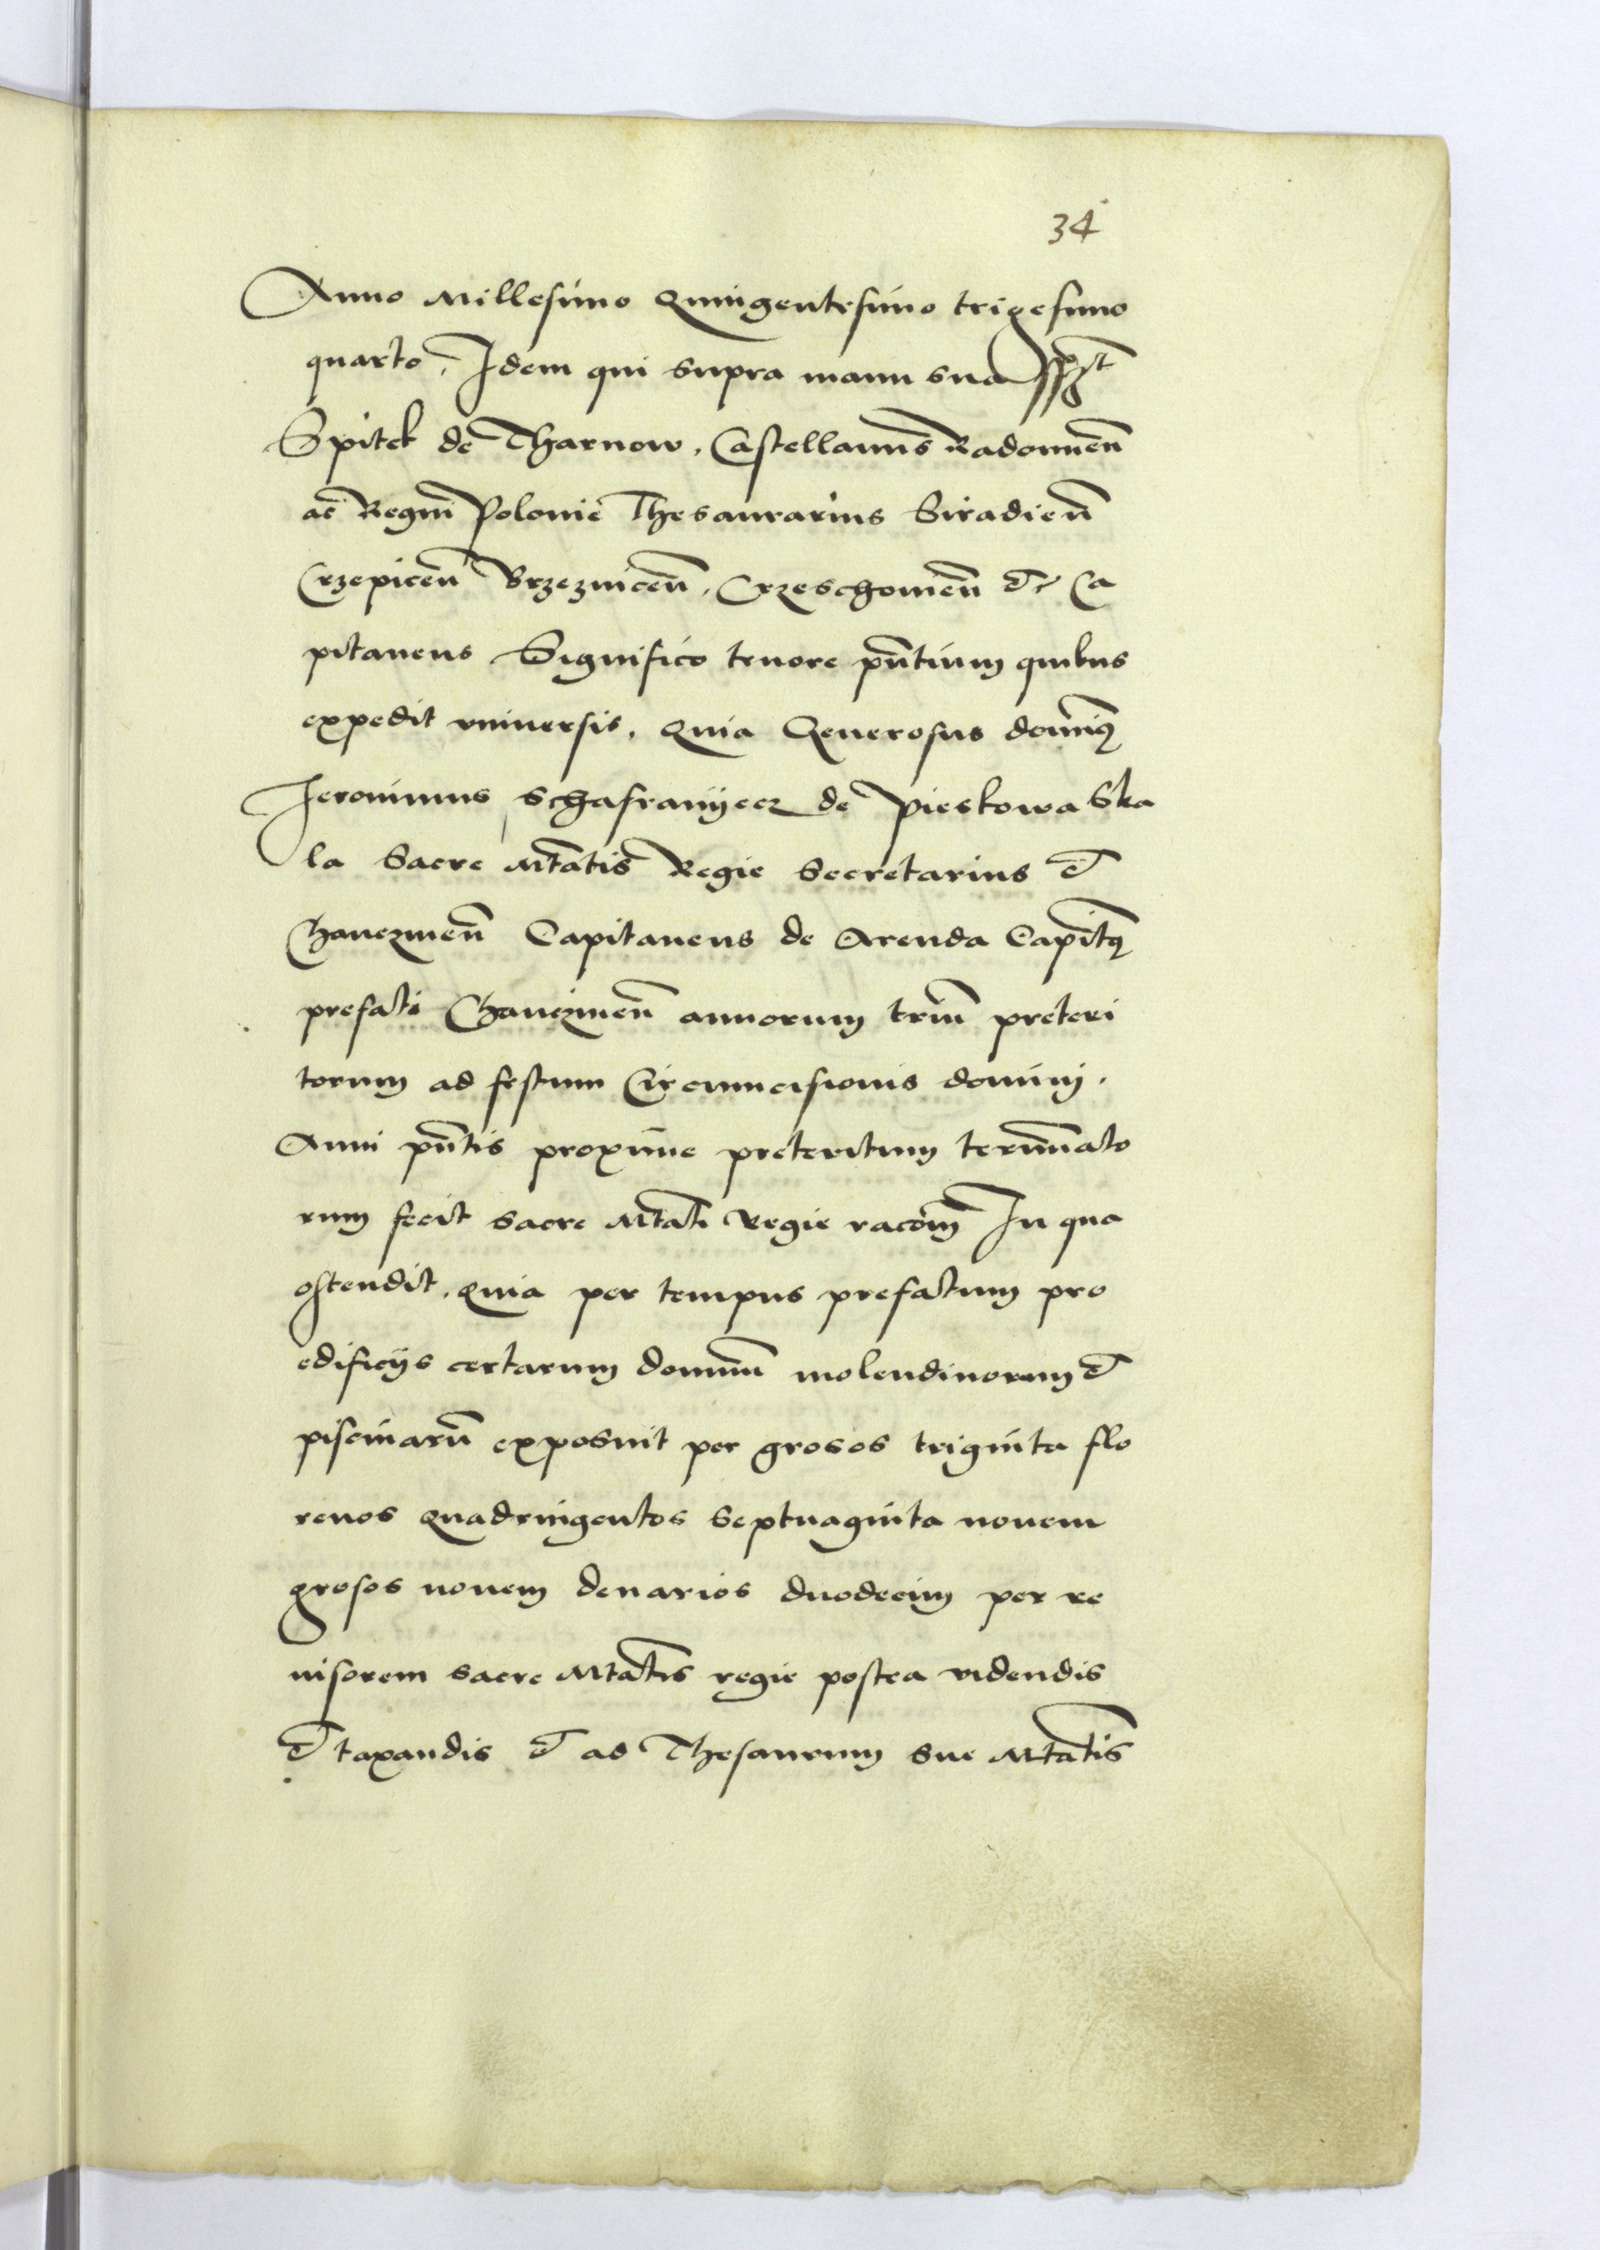 34
Anno Millesimo Quingentesimo trigesimo
quarto, Idem qui supra manu sua sspt
Spitek de Tharnow, Castellanus Radomień
ac Regni Polonie Thesaurarius Siradień
Crzepiceń Brzezniceń, Crzeschowień et Ca
pitaneus Significo tenore pñtium quibus
expedit vniuersis, Quia Generosus domin9
Jeronimus Schafranyecz de Pieskowa Ska
la Sacre Mtatis Regie Secretarius et
Chanczineñ Capitaneus de Arenda Capit9
prefati Chanczineñ annorum triũ preteri
torum ad festum Circumcisionis domini.
Anni pñtis proxime preteritum terminato
rum fecit sacre Mtati Regie racõem In qua
ostendit, Quia per tempus prefatum pro
edificijs certarum domuũ molendinorum et
piscinarũ exposuit per grosos triginta flo
renos quadringentos Septuaginta nouem
grosos nouem denarios duodecim per re
uisorem sacre Mtatis regie postea videndis
et taxandis et ad Thesaurum sue Mtatis